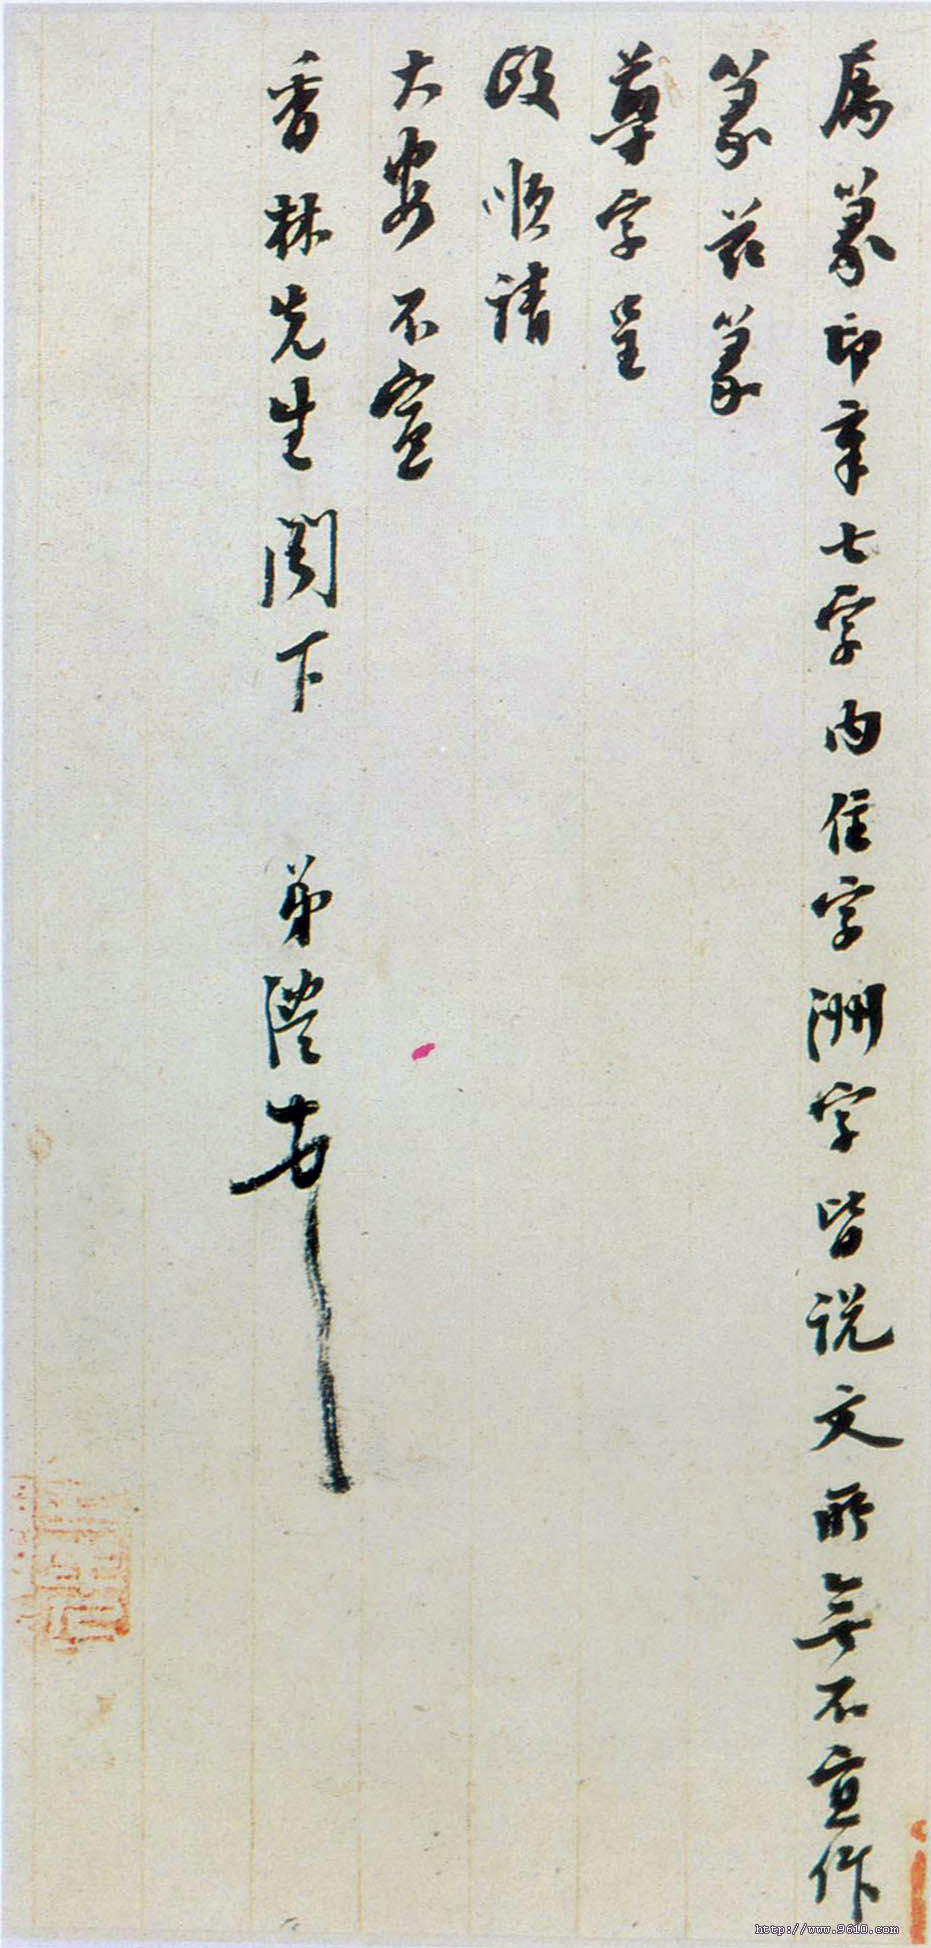 属篆印章七字内住字洲字皆説文所無不宜作
篆茲篆
尊字呈
政順請
大安不宣
香林先生閣下 弟澧
http://www.9610.com